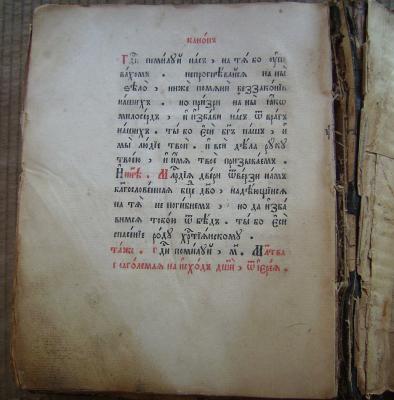 канѡ́нъ
Гдⷭ҇и поми́лꙋй на́съ, на́ тѧ бо ᲂу҆по
ва́хомъ. не прогнѣ́вайсѧ на ны̀
ѕѣлѡ̀, нижѐ помѧнѝ беззако́нїи
на́шихъ. но при́зри на ны̀ ꙗ҆́кѡ
милосе́рдъ, и҆ и҆зба́ви на́съ ѿ вра̑гъ
на́шихъ. ты́ бо є҆сѝ бг҃ъ на́шъ, и҆
мы̀ лю́дїе твоѝ. и҆ всѝ дѣ́ла рꙋкꙋ̀
твоє́ю, и҆ и҆́мѧ твоѐ призыва́емъ.
И҆ ны́нѣ. Млⷭ҇рдїѧ две́ри ѿве́рзи на́мъ
бл҃гослове́ннаѧ бц҃е дв҃о, надѣ́ющїисѧ
на тѧ̀ не поги́бнемъ, но да и҆зба́
вимсѧ тобо́ю ѿ бѣ́дъ. ты́ бо є҆сѝ
спасе́нїе ро́дꙋ хрⷭ҇тїѧ́нскомꙋ.
та́же. гдⷭ҇и поми́лꙋй, м҃. Мл҃тва
глаго́лемаѧ на и҆схо́дъ дш҃и, ѿ і҆ере́ѧ.